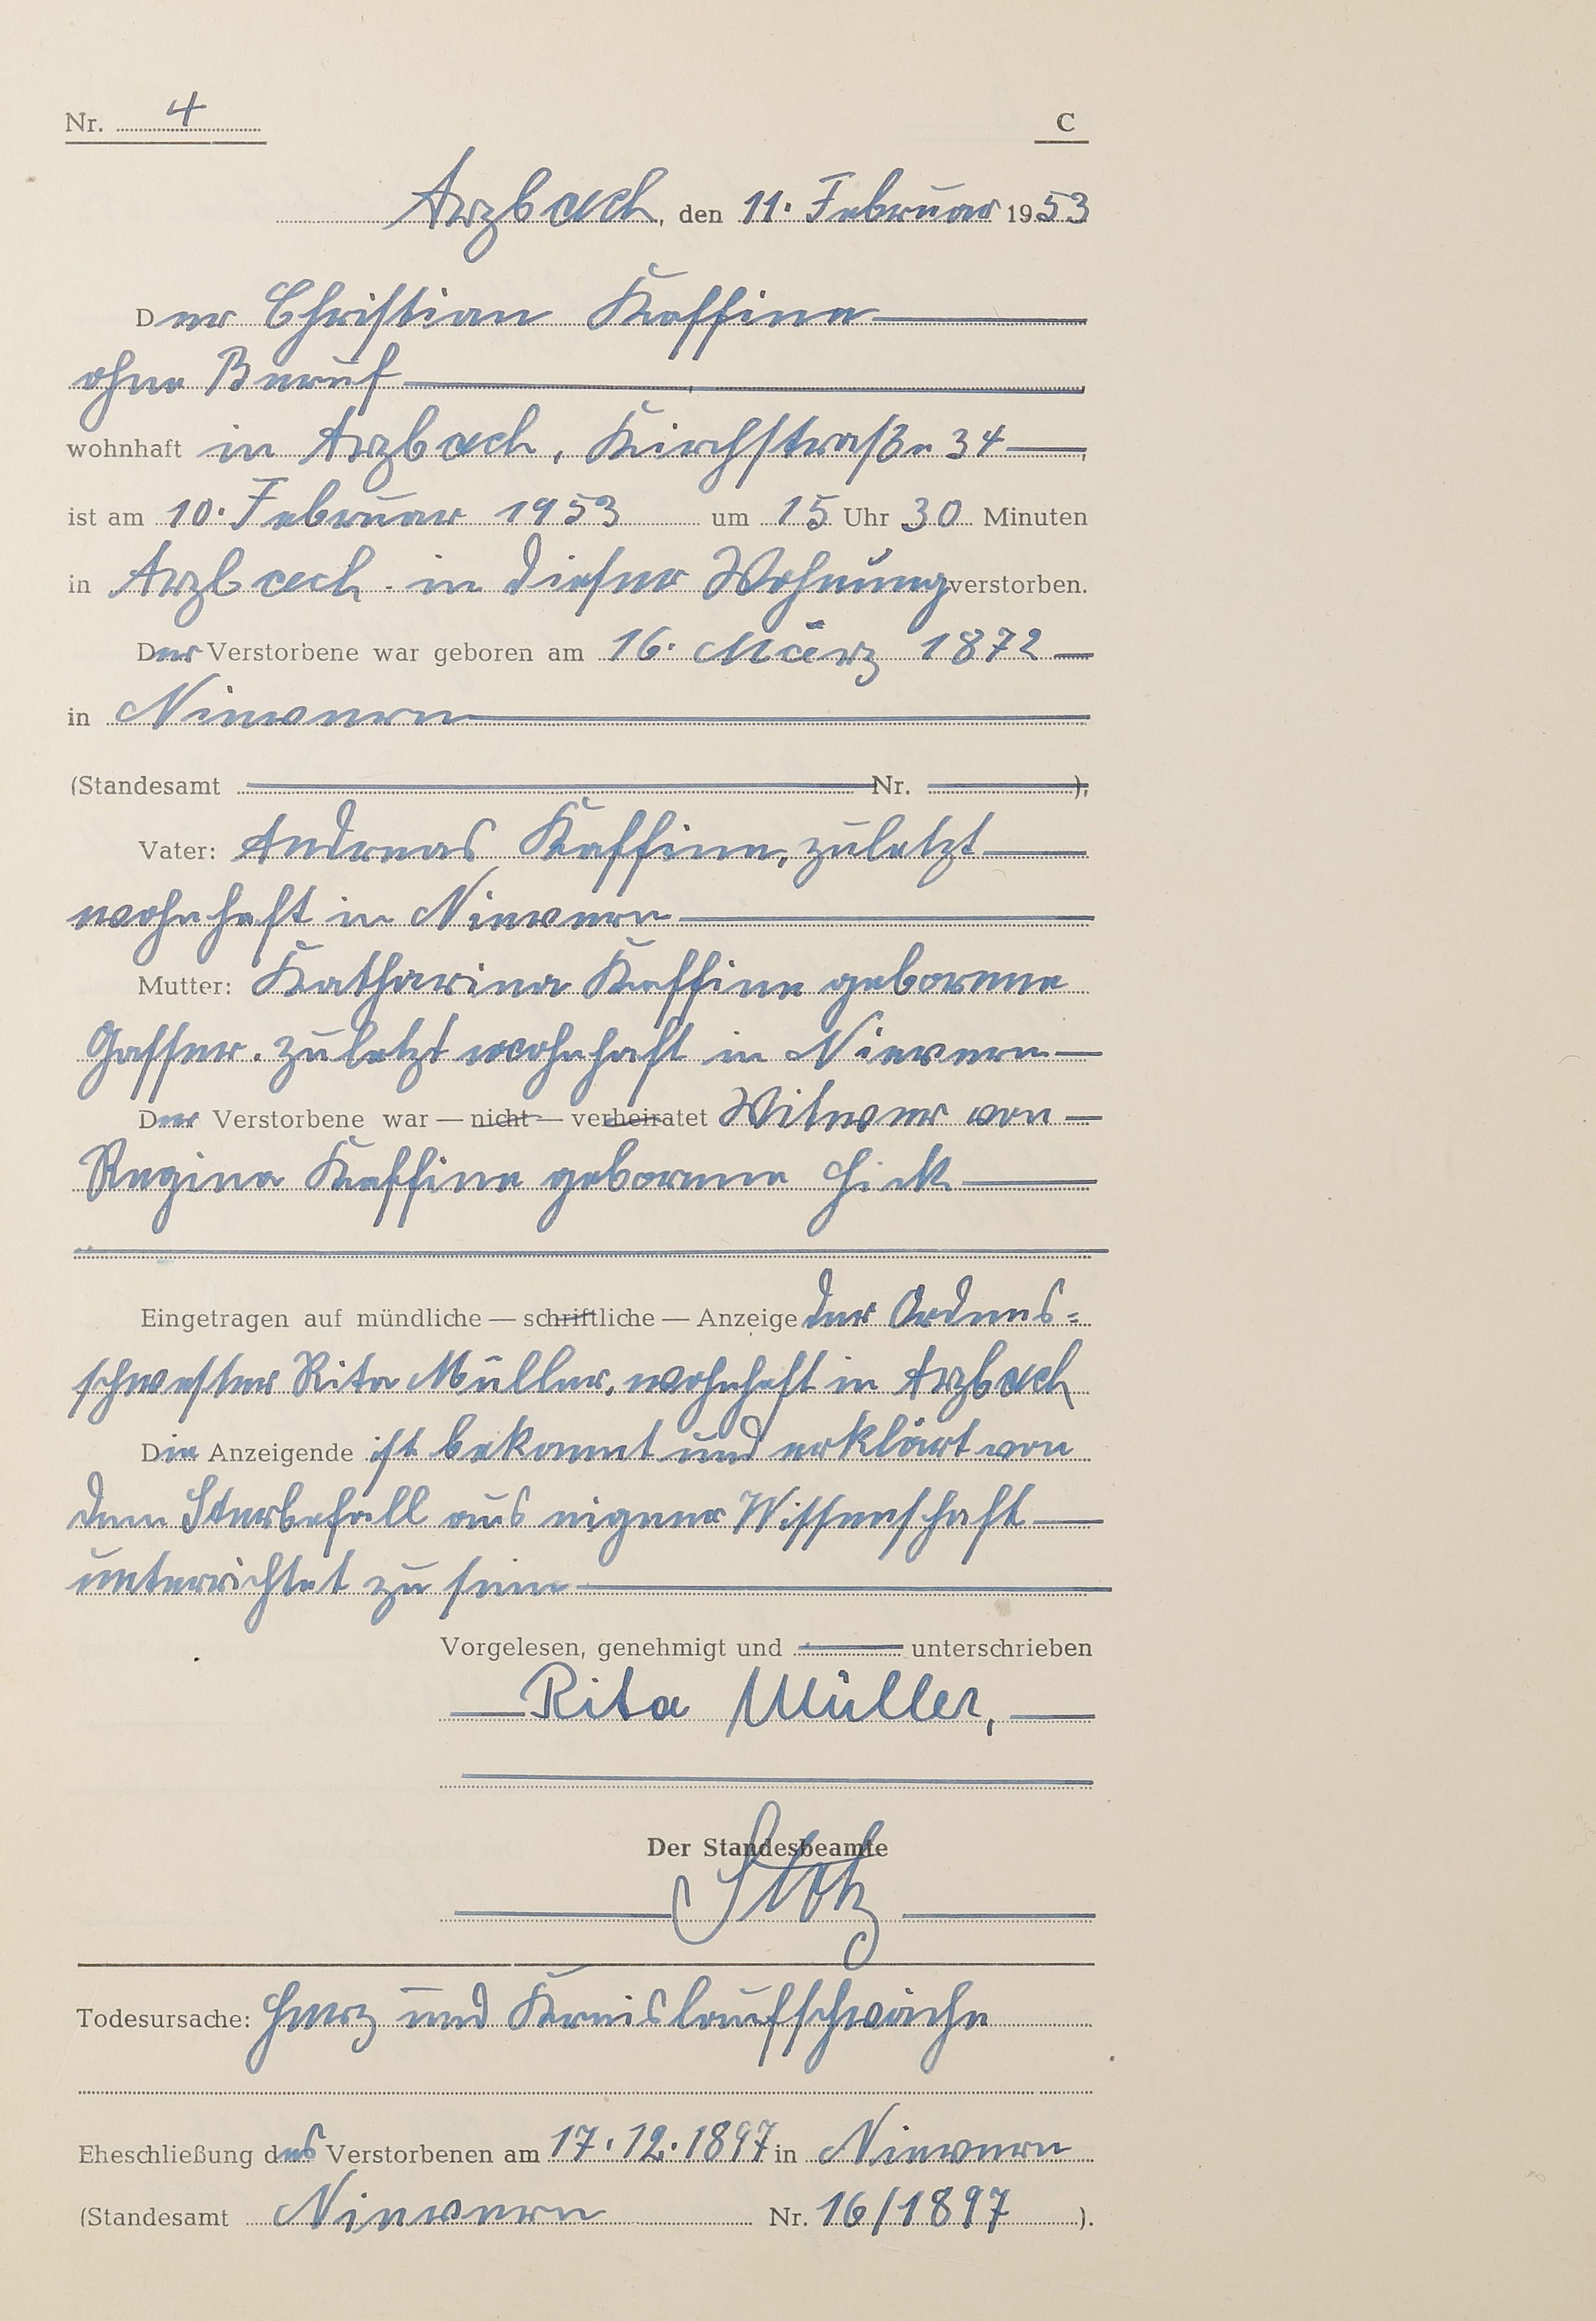 Nr. 4 C
Arzbach, den 11. Februar 1953
Der Christian Kaffine
ohne Beruf
wohnhaft in Arzbach, Kirchstraße 34,
ist am 10. Februar 1953 um 15 Uhr 30 Minuten
in Arzbach in dieser Wohnung verstorben.
Der Verstorbene war geboren am 16. März 1872
in Nievern
(Standesamt Nr. ),
Vater: Andreas Kaffine, zuletzt
wohnhaft in Nievern
Mutter: Katharina Kaffine geborene
Gasser, zuletzt wohnhaft in Nievern
Der Verstorbene war — nicht — verheiratet Witwer von
Regina Kaffine geborene Hick
Eingetragen auf mündliche — schriftliche — Anzeige der Ordens=
schwester Rita Müller, wohnhaft in Arzbach
Die Anzeigende ist bekannt und erklärt von
dem Sterbefall aus eigener Wissenschaft
unterrichtet zu sein
Vorgelesen, genehmigt und unterschrieben
Rita Müller,
Der Standesbeamte
Stotz
Todesursache: Herz und Kreislaufschwäche
Eheschließung des Verstorbenen am 17.12.1897 in Nievern
(Standesamt Nievern Nr. 16/1897 ).